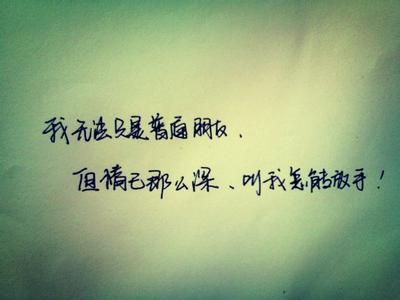 我无法只是普通朋友.
但情已那么深、叫我怎能放手!